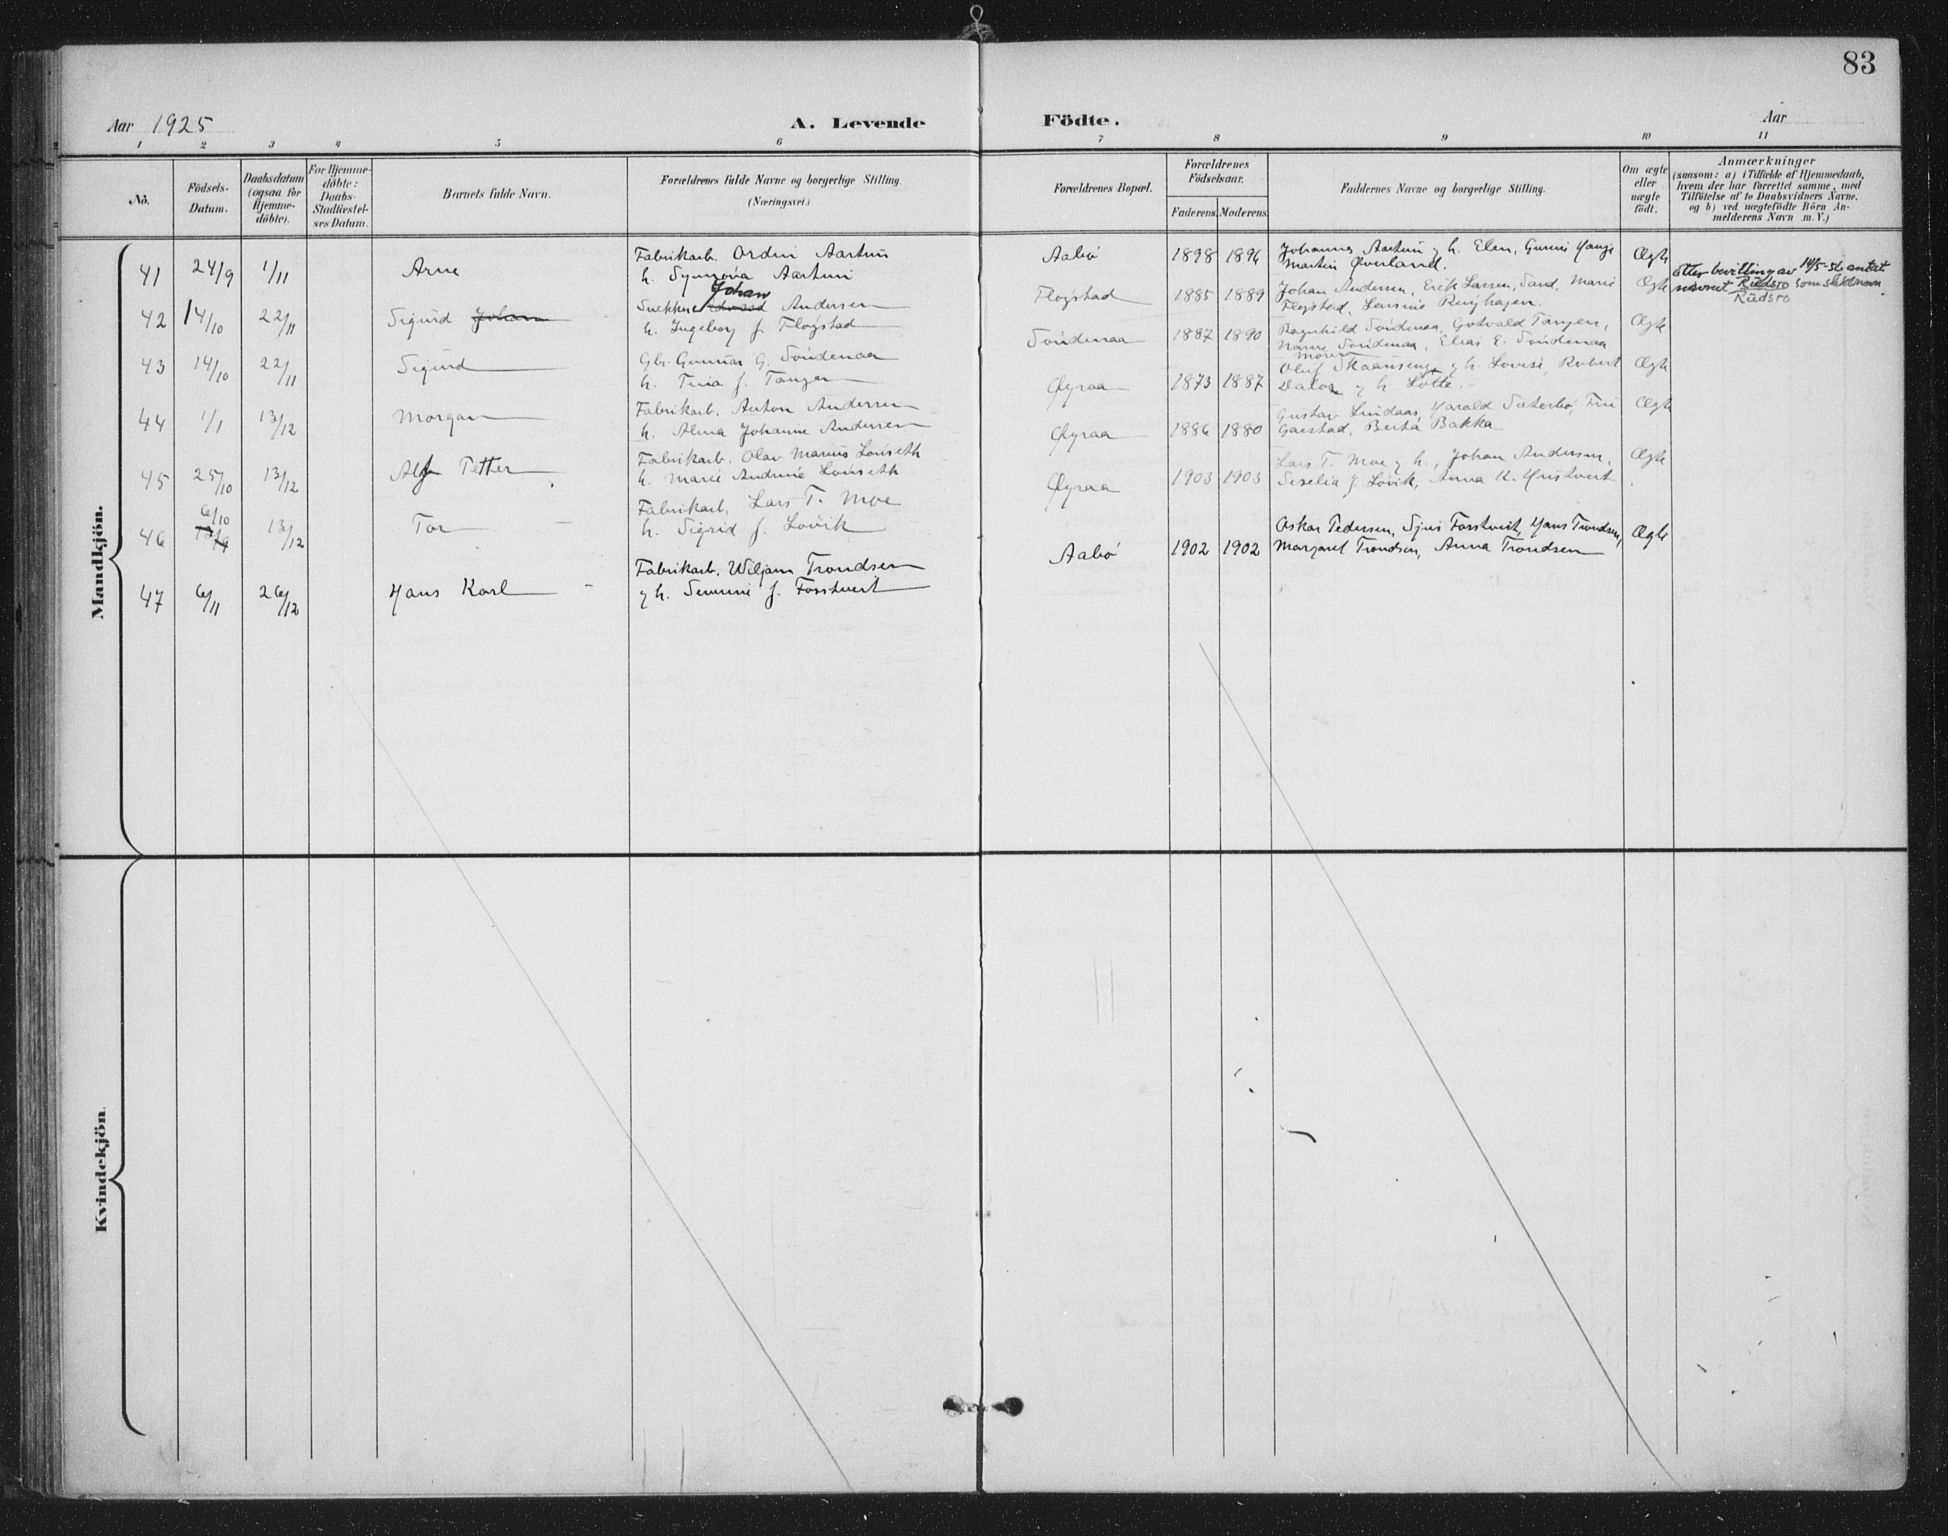 83
Aar 1925 A. Levende Födte. Aar
1 2 3 4 5 6 7 8 9 10 11
No. Födsels-Datum. Daabsdatum (ogsaa for Hjemme-döbte). For Hjemme-döbte: Daabs-Stadfæstel-ses Datum. Barnets fulde Navn. Forældrenes fulde Navne og borgerlige Stilling (Næringsvei.) Forældrenes Bopæl. Forældrenes Födselsaar. Faderens Moderens Faddernes Navne og borgerlige Stilling. Om ægte eller uægte födt. Anmærkninger (saasom: a) i Tilfælde af Hjemmedaab, hvem der har forrettet samme, med Tilföielse af to Daabsvidners Navne, og b) ved uægtefödte Börn An-melderens Navn m. V.)
Mandkjön.
41 24/9 1/11 Arne
Fabrikarb. Ordin Aartun
h. Synnøva Aartun
Aabø 1898 1896
Johannes Aartun y h. Elen, Gunni Hauge
Martin Øverland.
Ægte
42 14/10 22/11 Sigurd Johan
Johan
Snekker Andersen
h. Ingeborg f. Flogstad
Flogstad 1885 1889
Johan Andersen, Erik Larsen, Sand, Marie
Flogstad, Lensine Ringhagen.
Ægte
etter bevilling av 14/5-56 antat
navnet Rudsro som slektsnavn.
Rudsro
43 14/10 22/11 Sigurd
Gbr. Gunnar G. Söndenaa
h. Tina f. Tangen
Söndenaa 1887 1890
Ragnhild Söndenaa, Gotvald Tangen,
Söndenaa, Elias E. Söndenaa
Ægte
44 1/1 13/12 Morgan
Fabrikarb. Anton Andersen
h. Alma Johanne Andersen
Øyraa 1873 1887
Moren
Oluf y h. Lovise, Robert
y h. Lotte.
Ægte
45 25/10 13/12 Alf Petter
Fabrikarb. Olav Marius Lonseth
h. Marie Andrine Lonseth
Øyraa 1886 1880
Gustav Lindaas, Harald Sæterbø,
Garstad, Berta Bakka
Ægte
46 6/10 13/12 Tor
Fabrikarb. Lars T. Moe
h. Sigrid f. Lovik
Øyraa 1903 1903
Lars T. Moe y h., Johan Andersen,
Siselia J. Lovik, Anna K.
Ægte
47 6/11 26/12 Hans Karl
Fabrikarb. Wiljam Trondsen
y h. Severine f. Fosstveit
Aabø 1902 1902
Oskar Pedersen, Fosstveit, Hans Trondsen,
Margaret Trondsen, Anna Trondsen
Ægte
Kvindekjön.